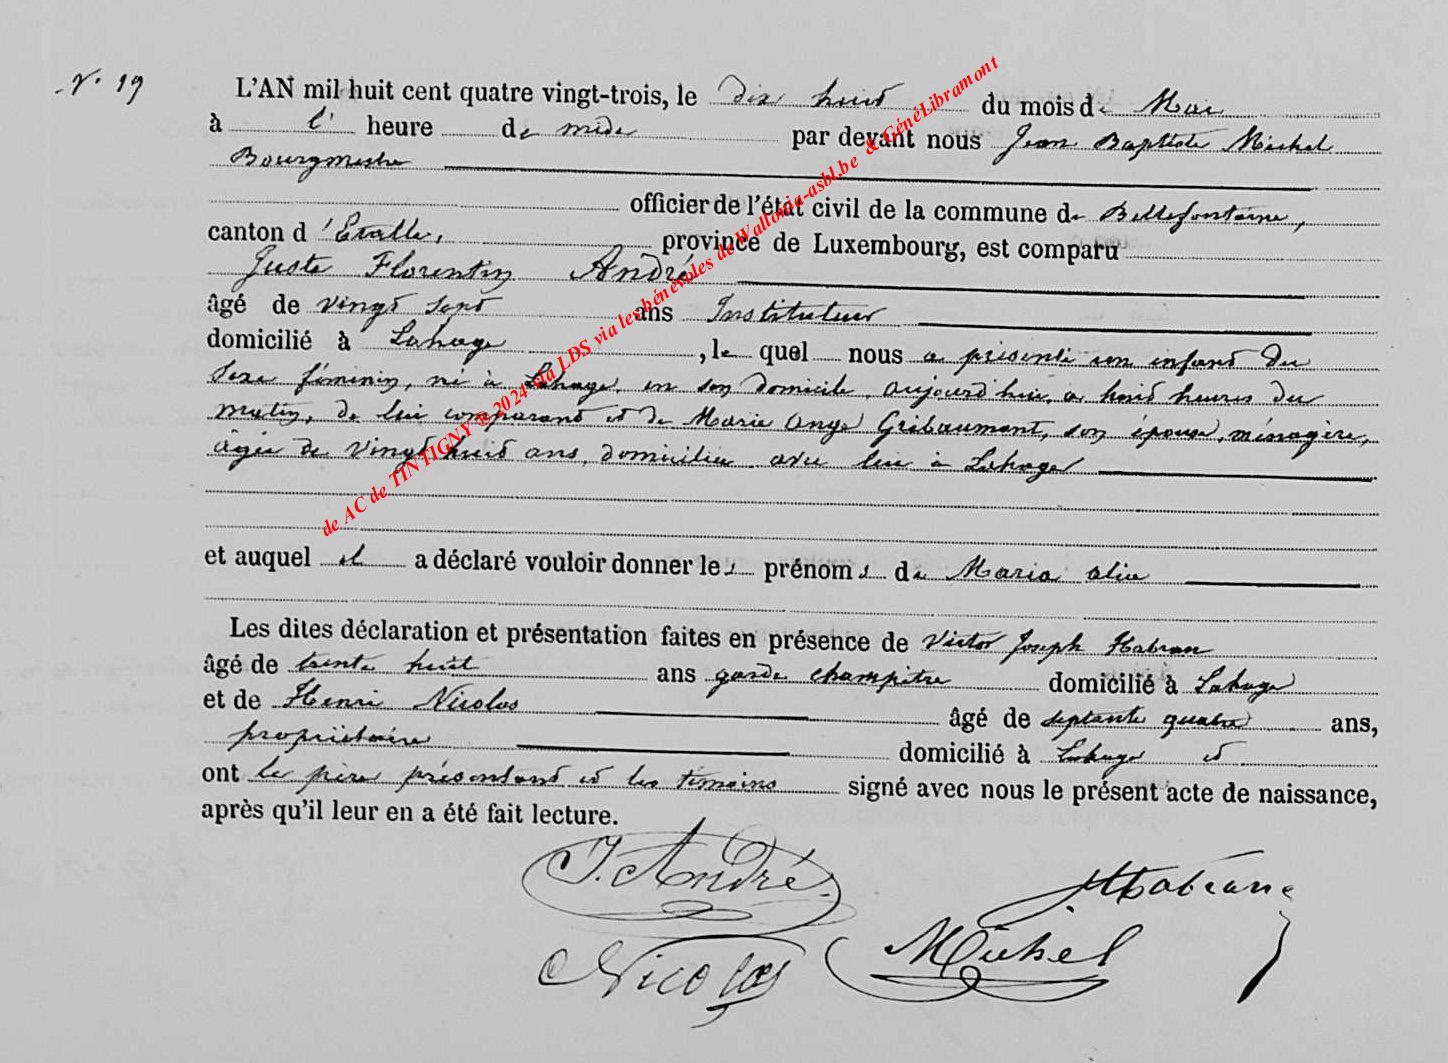 N° 19
L'AN mil huit cent quatre vingt-trois, le dix huit du mois de Mai
à l' heure de midi par devant nous Jean Baptiste Michel
Bourgmestre
officier de l'état civil de la commune de Bellefontaine,
canton d'Etalle, province de Luxembourg, est comparu
Juste Florentin André
âgé de vingt sept ans Instituteur
domicilié à Lahage, le quel nous a présenté un enfant du
sexe féminin, né à Lahage, en son domicile, aujourd'hui, à huit heures du
matin, de lui comparant et de Marie Ange Gribaumont, son épouse, ménagère,
âgée de vingt huit ans, domiciliée avec lui à Lahage
et auquel il a déclaré vouloir donner les prénoms de Maria Alix
Les dites déclaration et présentation faites en présence de Victor Joseph Habran
âgé de trente huit ans garde champêtre domicilié à Lahage
et de Henri Nicolas âgé de septante quatre ans,
propriétaire domicilié à Lahage et
ont le père présentant et les témoins signé avec nous le présent acte de naissance,
après qu'il leur en a été fait lecture.
J. André
Habran
Nicolas
Michel
de AC de TINTIGNY ® 2024 via LDS via les bénévoles de Wallonia-asbl.be & GénéLibramont